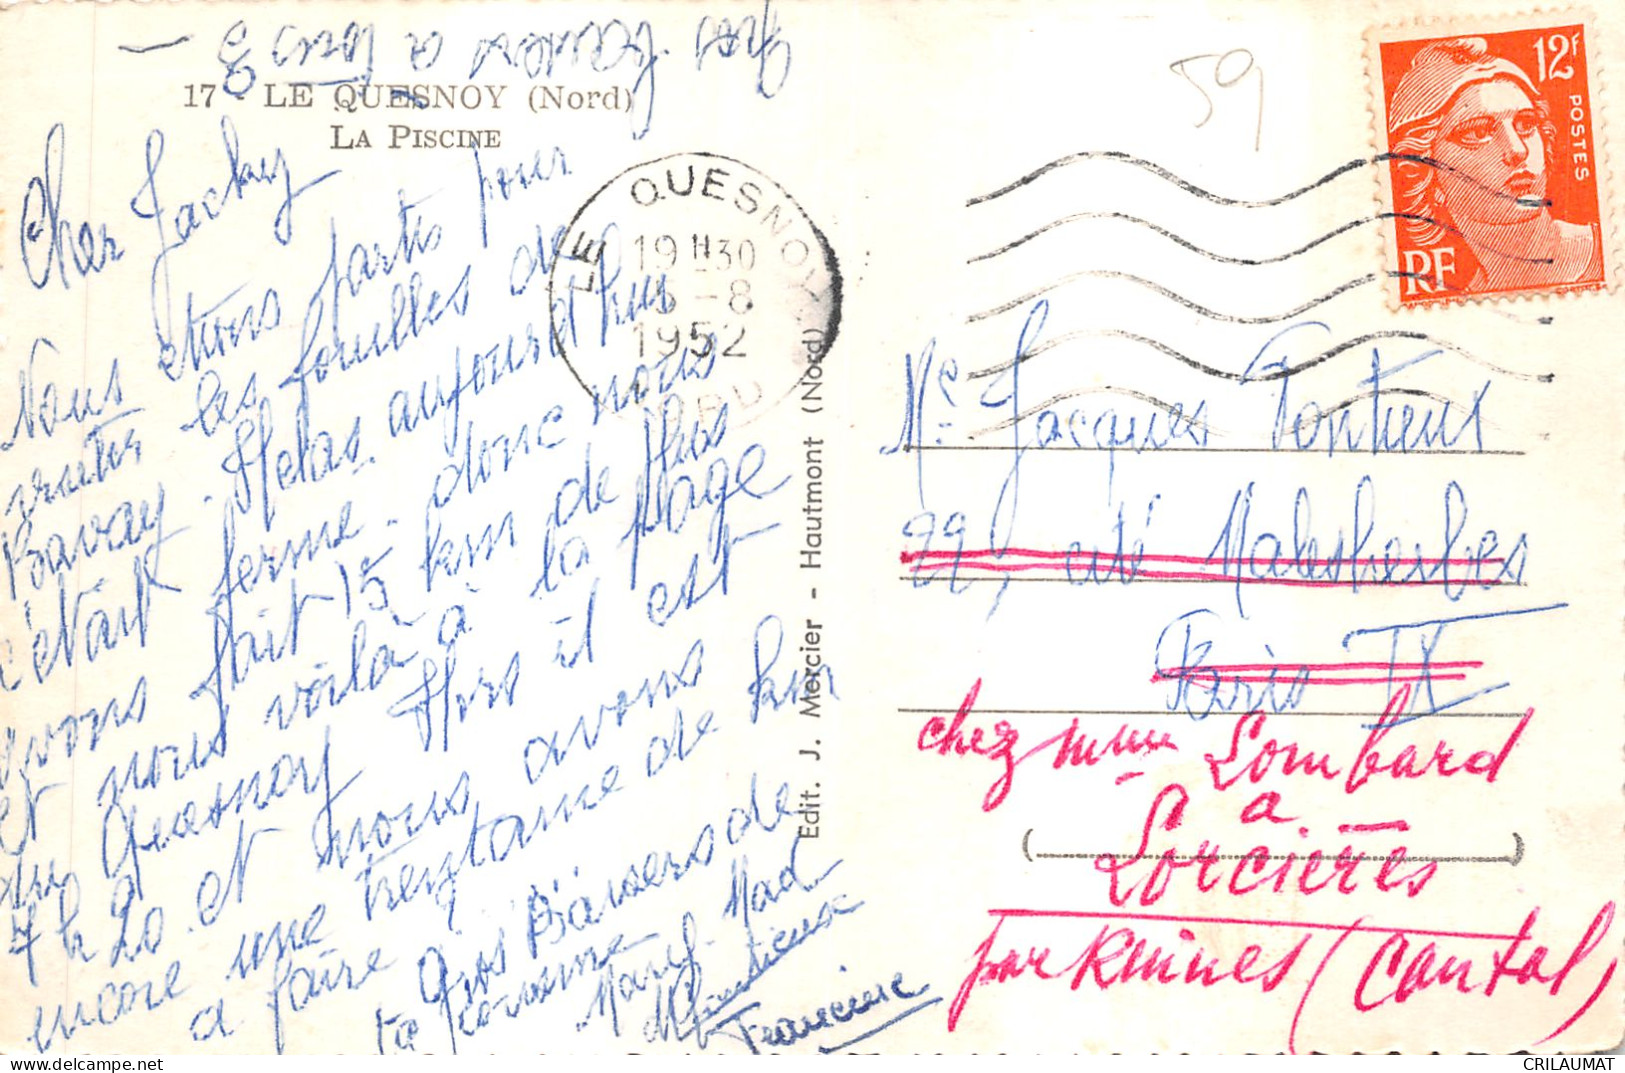 Gros baisers à tous 3 -
17 - LE QUESNOY (Nord)
LA PISCINE
Cher Jacky
Nous étions partis pour
visiter les fouilles de
Bavay. Hélas aujourd'hui
c'était fermé. donc nous
avons fait 15 km de plus
et nous voilà à la plage
du Quesnoy Hrs il est
7 h 20. et nous avons
encore une trentaine de km
à faire
Gros Baisers de
ta
Mad
Francine
LE QUESNOY
19 H30
5 - 8
1952
NORD
Edit. J. Mercier - Hautmont (Nord)
59
12F
POSTES
RF
Mr. Jacques Pontieux
22, cité Malesherbes
Paris IX
chez Mme Lombard
a
Lorcières
par Ruines (Cantal)
CRILAUMAT